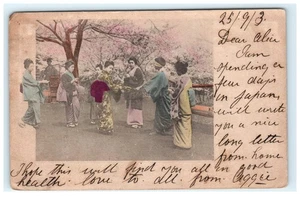 25/9/3
Dear Elsie
I'm
spending a
few days
in Japan,
will write
you a nice
long letter
from home
I hope this will find you all in good
health. love to all. from Aggie